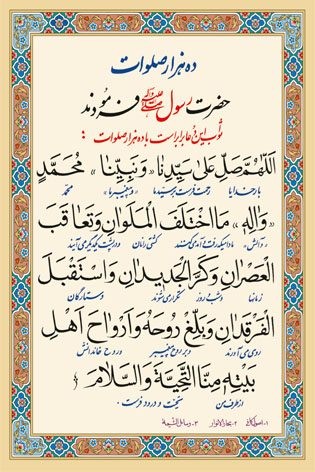 ده هزار صلوات
حضرت رسول ﷺ فرمودند
ثواب این دعا برابر است با ده هزار صلوات :
اَللّٰهُمَّ صَلِّ عَلیٰ سَیِّدِنٰا «وَ نَبِیِّنٰا» مُحَمَّدٍ
بار خدایا رحمت فرست بر سید ما «و پیغمبر ما» محمد
«وَ اٰلِهِ» مَا اخْتَلَفَ الْمَلَوٰانِ وَ تَعٰاقَبَ
«و آلش» مادامیکه رفت و آمد می کنند و در پشت یکدیگر می آیند
الْعَصْرٰانِ وَ کَرَّ الْجَدیدٰانِ وَ اسْتَقْبَلَ
زمانها و شب و روز تکرار می شوند و ستارگان
الْفَرْقَدٰانِ وَ بَلِّغْ رُوحَهُ وَ اَرْوٰاحَ اَهْلِ
روی می آورند و بر روح پیغمبر و روح خاندانش
بَیْتِهِ مِنَّا التَّحِیَّةَ وَ السَّلٰامَ ﴿
از طرف من تحیت و درود فرست .
۱- اصول کافی ۲- بحارالانوار ۳- وسائل الشیعة